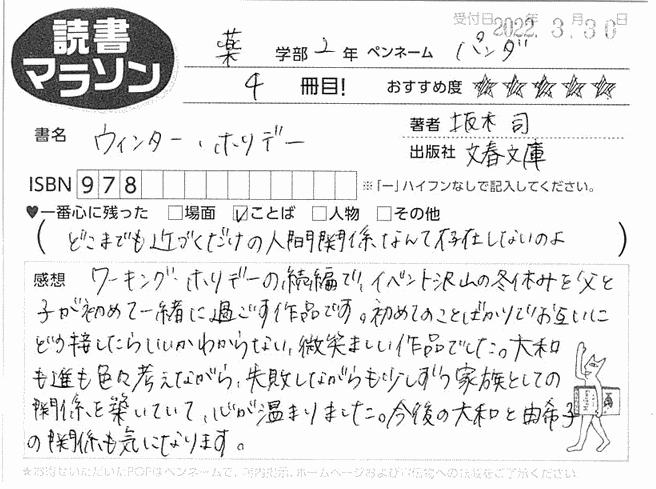 読書
マラソン
受付日 2022年 3月30日
薬 学部 2 年 ペンネーム パンダ
4 冊目! おすすめ度 ★★★★★
書名 ウィンター・ホリデー
著者 坂木 司
出版社 文春文庫
ISBN 978 ※「ー」ハイフンなしで記入してください。
♥一番心に残った □場面 ☑ことば □人物 □その他
(どこまでも近づくだけの人間関係なんて存在しないのよ)
感想 ワーキング・ホリデーの続編で、イベント沢山の冬休みを父と
子が初めて一緒に過ごす作品です。初めてのことばかりでお互いに
どう接したらいいかわからない、微笑ましい作品でした。大和
も進も色々考えながら、失敗しながらも少しずつ家族としての
関係を築いていて、心が温まりました。今後の大和と由希子
の関係も気になります。
★お寄せいただいたPOPはペンネームで、店内掲示、ホームページおよび宣伝物への転載をご了承ください